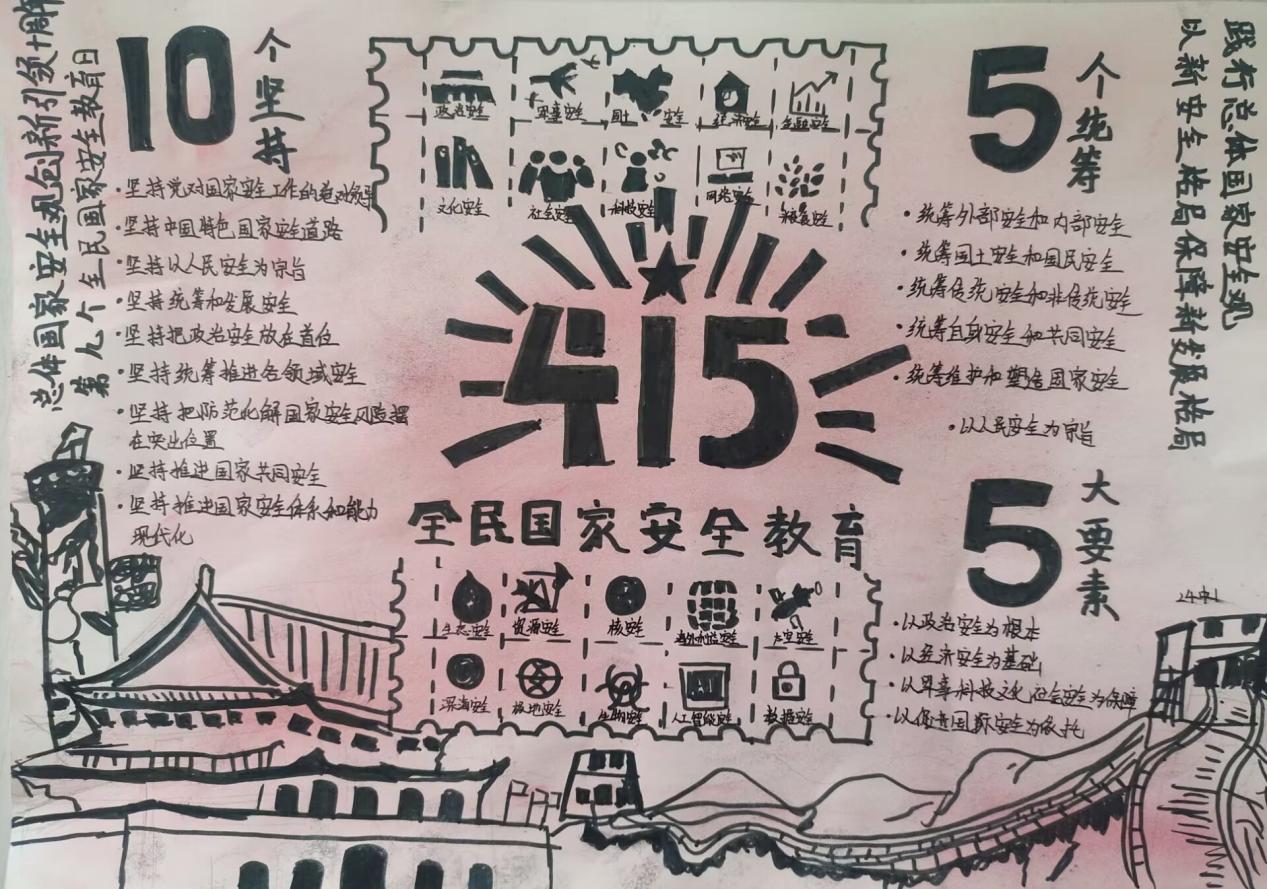 总体国家安全观创新引领十周年
第九个全民国家安全教育日
10个坚持
·坚持党对国家安全工作的绝对领导
·坚持中国特色国家安全道路
·坚持以人民安全为宗旨
·坚持统筹和发展安全
·坚持把政治安全放在首位
·坚持统筹推进各领域安全
·坚持把防范化解国家安全风险摆
在突出位置
·坚持推进国家共同安全
·坚持推进国家安全体系和能力
现代化
政治安全 军事安全 国土安全 经济安全 金融安全
文化安全 社会安全 科技安全 网络安全 粮食安全
415
全民国家安全教育
生态安全 资源安全 核安全 海外利益安全 太空安全
深海安全 极地安全 生物安全 人工智能安全 数据安全
5个统筹
·统筹外部安全和内部安全
·统筹国土安全和国民安全
·统筹传统安全和非传统安全
·统筹自身安全和共同安全
·统筹维护和塑造国家安全
5大要素
·以人民安全为宗旨
·以政治安全为根本
·以经济安全为基础
·以军事科技文化社会安全为保障
·以促进国际安全为依托
践行总体国家安全观
以新安全格局保障新发展格局